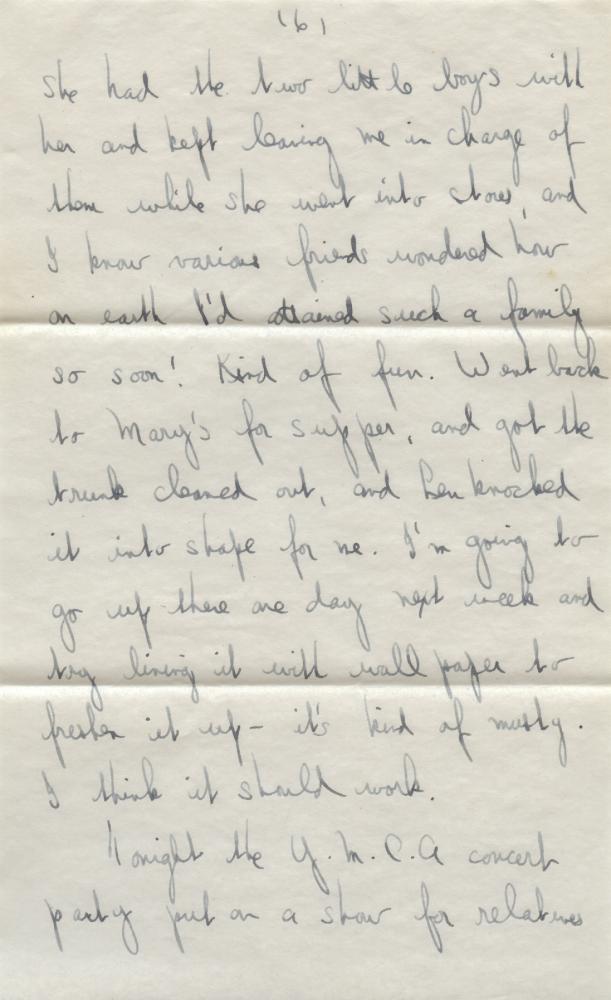 (6)
she had the two little boys with
her and kept leaving me in charge of
them while she went into stores, and
I know various friends wondered how
on earth I'd attained such a family
so soon! Kind of fun. Went back
to Mary's for supper, and got the
trunk cleaned out, and Len knocked
it into shape for me. I'm going to
go up there one day next week and
try lining it with wall paper to
freshen it up - it's kind of musty.
I think it should work.
Tonight the Y.M.C.A concert
party put on a show for relatives